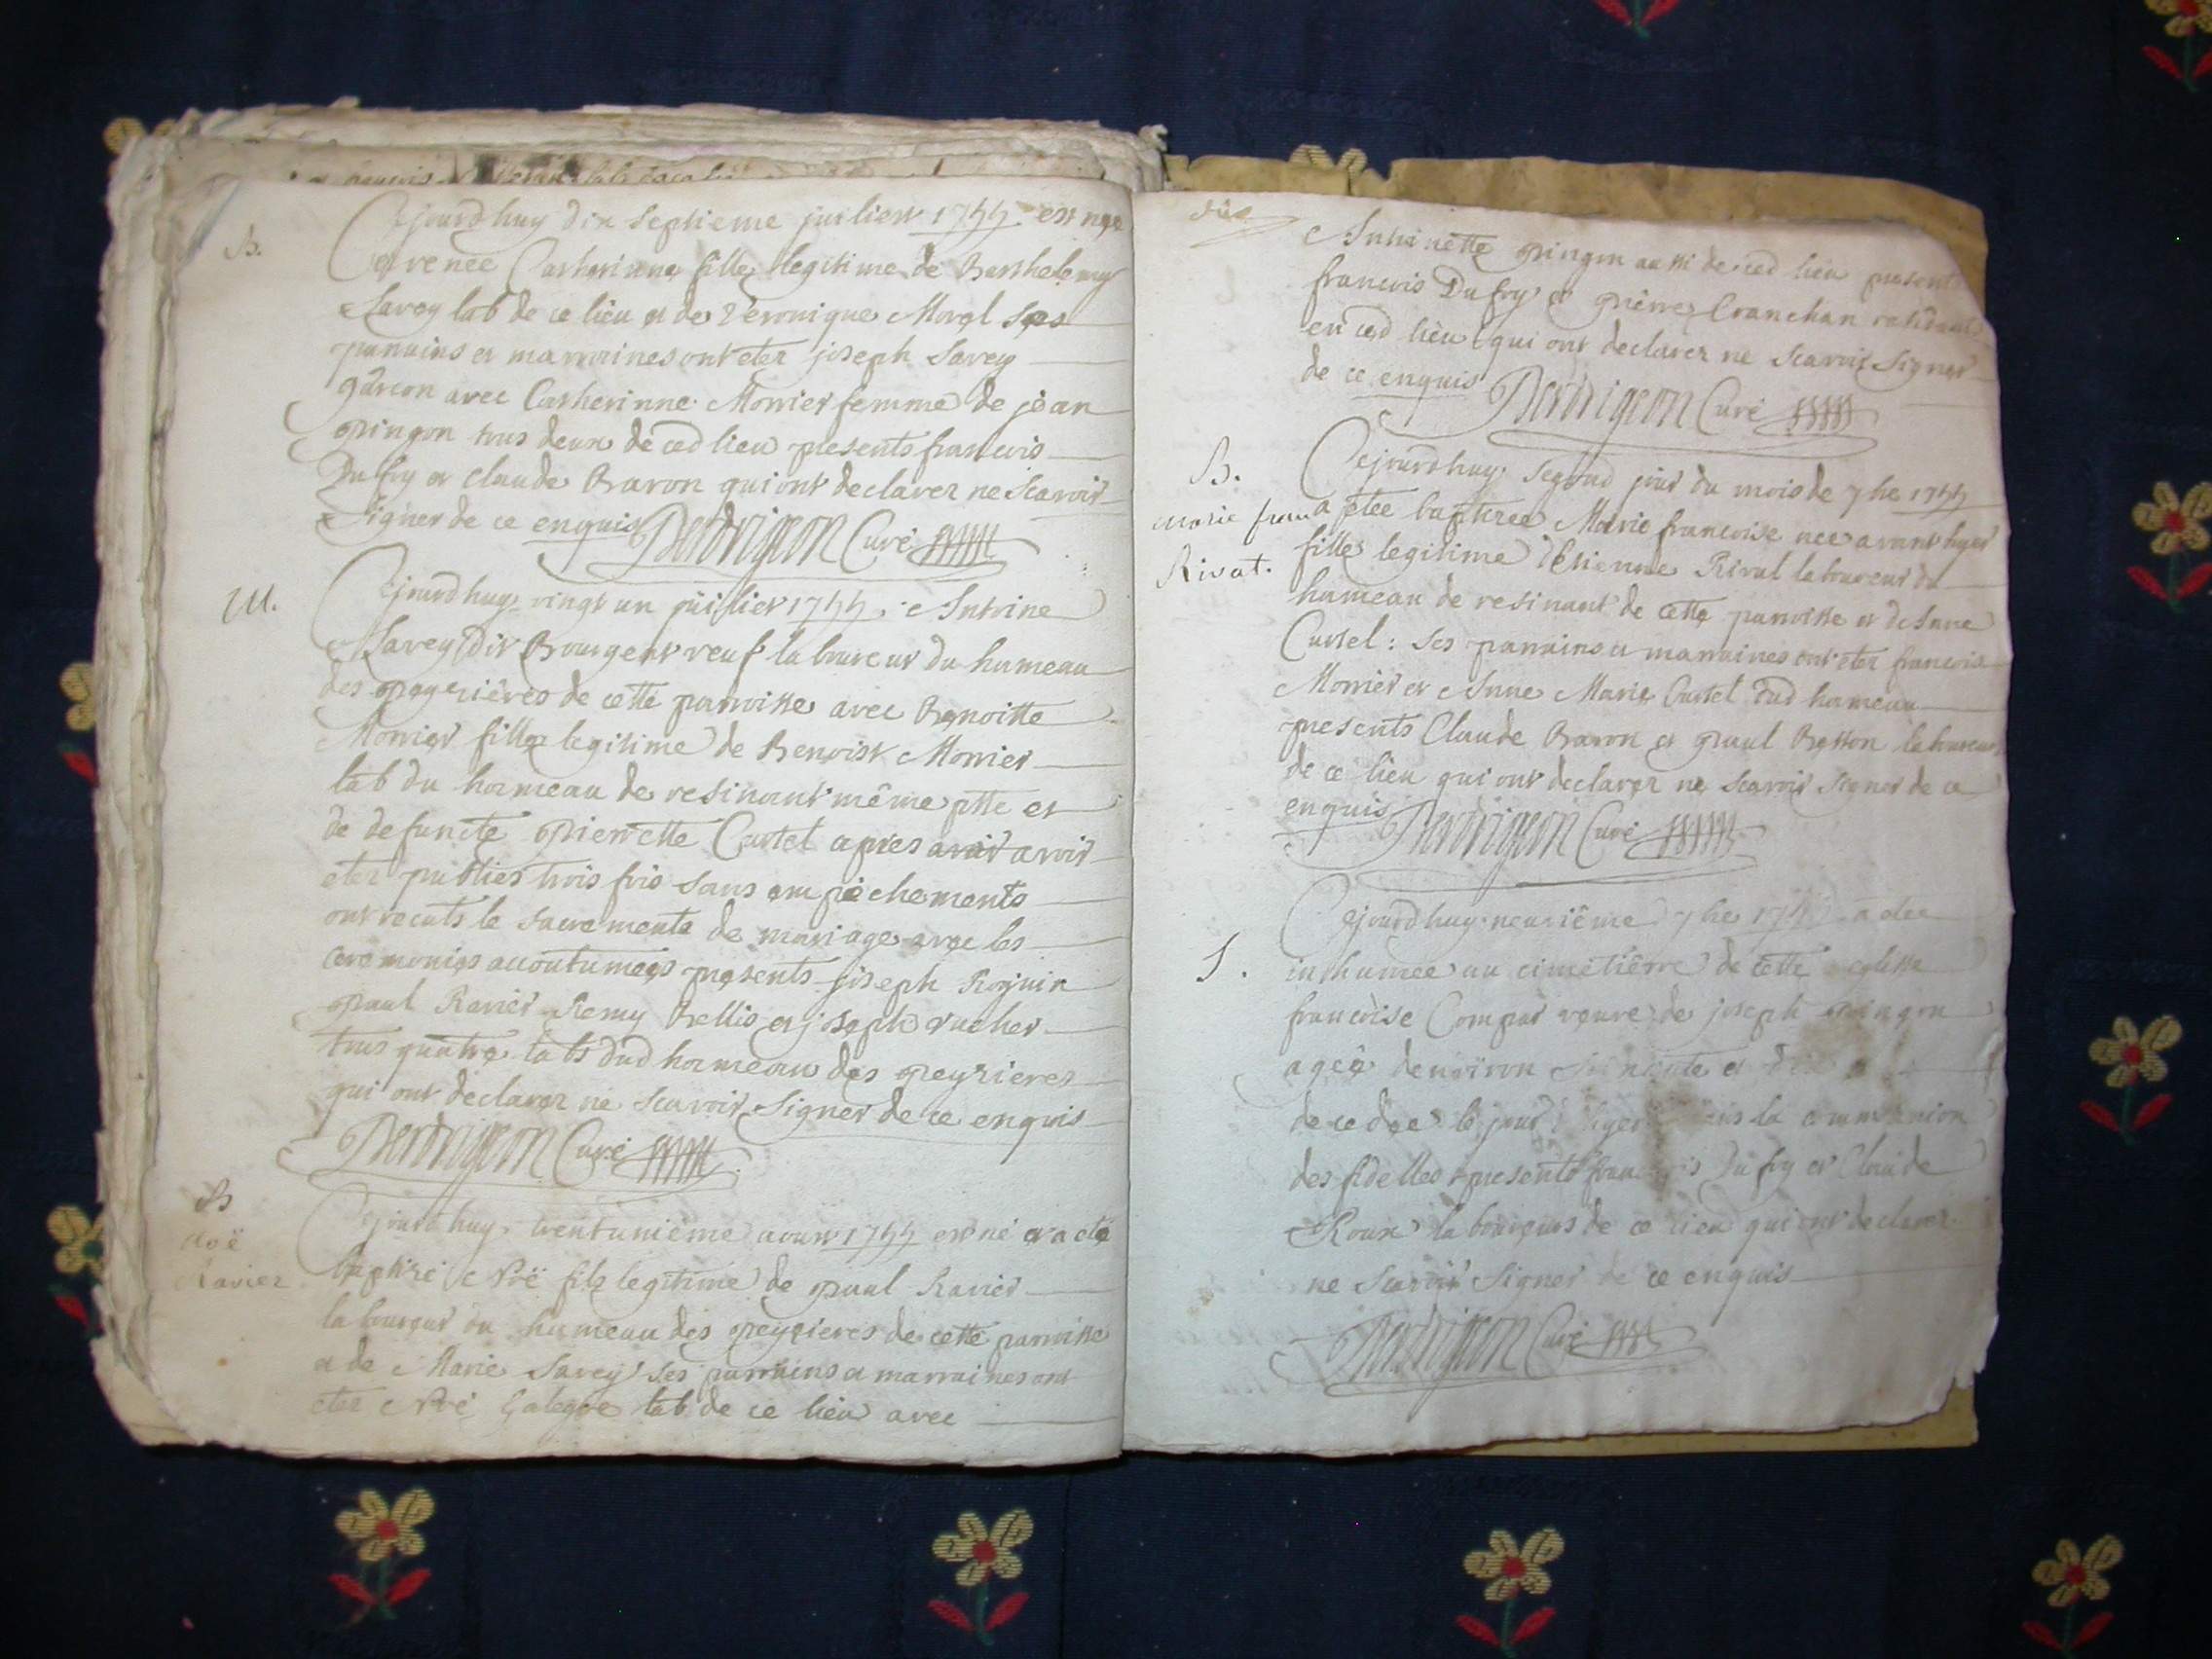 B.
Cejourdhuy dix septieme juilliest 1744 est nee
et renée Catherinne fille legitime de Barthelemy
Savey lab de ce lieu et de Veronique Morel ses
parrains et marraines ont eter joseph Savey
garcon avec Catherinne Morrier femme de jean
pingon tous deux de ced lieu presents francois
Dufry et Claude Baron qui ont declarer ne scavoir
signer de ce enquis Perdrigeon Curé
M.
Cejourdhuy vingt un juillier 1744 Antoine
Savey dit Bourgeat veuf laboureur du hameau
des peyzières de cette parroisse avec Benoitte
Morrier fille legitime de Benoist Morrier
lab du hameau de resinant même psse et
de defuncte pierrette Curtet apres avoir avoir
eter publies trois fois sans empèchements
ont recuts le sacrements de mariage avec les
ceremonies accoutumees presents joseph Rojnin
paul Ravier Remy Bellis et joseph rucher
tous quatre labs dud hameau des peyzieres
qui ont declarer ne scavoir signer de ce enquis
Perdrigeon Curé
B
Noë
Ravier
Cejourdhuy trentunième aoust 1744 est né et a eté
baptizé Noë fils legitime de paul Ravier
laboureur du hameau des peyzieres de cette parroisse
et de Marie Savey ses parrains et marraines ont
eter Noë Galegue lab de ce lieu avec
Antoinette pingon aussi de ced lieu presents
francois Dufry et pierre Cranchan residants
en ced lieu qui ont declarer ne scavoir signer
de ce enquis Perdrigeon Curé
B.
marie fran
Rivat.
Cejourdhuy segond jour du mois de 7bre 1744
a etee baptizee Marie francoise nee avant hyer
fille legitime d'Etienne Rivat laboureur du
hameau de resinant de cette parroisse et de Anne
Curtet : ses parrains et marraines ont eter francois
Morrier et Anne Marie Curtet dud hameau
presents Claude Baron et paul Besson laboureurs
de ce lieu qui ont declarer ne scavoir signer de ce
enquis Perdrigeon Curé
S.
Cejourdhuy neuvième 7bre a etee
inhumee au cimetière de cette eglisse
francoise Compar veuve de joseph pingon
agée denviron et
decedee le jour dhyer la communion
des fidelles presents francois Dufry et Claude
Roux laboureurs de ce lieu qui ont declarer
ne scavoir signer de ce enquis
Perdrigeon Curé